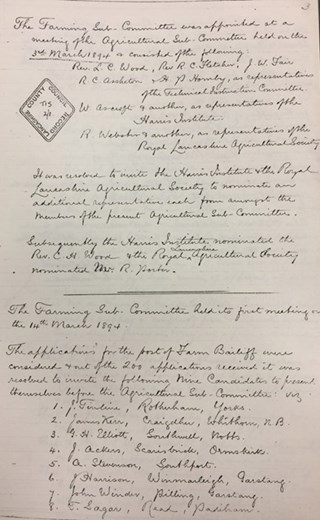 The Farming Sub-Committee was appointed at a
meeting of the Agricultural Sub-Committee held on the
3rd March 1894 & consisted of the following:
Rev. L. C. Wood, Rev R C Fletcher, J. W. Fair
R C Assheton & A P Hornby, as representatives
of the Technical Instruction Committee
W Ascroft & another, as representatives of the
Harris Institute.
R. Webster & another, as representatives of the
Royal Lancashire Agricultural Society
COUNTY COUNCIL
LANCASHIRE RECORD
It was resolved to invite the Harris Institute & the Royal
Lancashire Agricultural Society to nominate an
additional representative each from amongst the
members of the present Agricultural Sub-Committee.
Subsequently the Harris Institute nominated the
Rev. C. H Wood & the Royal Lancashire Agricultural Society
nominated Mr R. Porter.
The Farming Sub-Committee held its first meeting on
the 14th March 1894.
The applications for the post of Farm Bailiff were
considered & out of the 200 applications received it was
resolved to invite the following Nine Candidates to present
themselves before the Agricultural Sub-Committee viz
1. J. Rotherham, Yorks.
2. James Kerr, Craigdhu, Whithorn, N.B.
3. G. H. Elliott, Southwell, Notts.
4. J. Ackers, Scarisbrick, Ormskirk.
5. A. Stevenson, Southport.
6. J Harrison, Winmarleigh, Garstang.
7. John Winder, Pilling, Garstang.
8. Sagar, Read, Padiham.